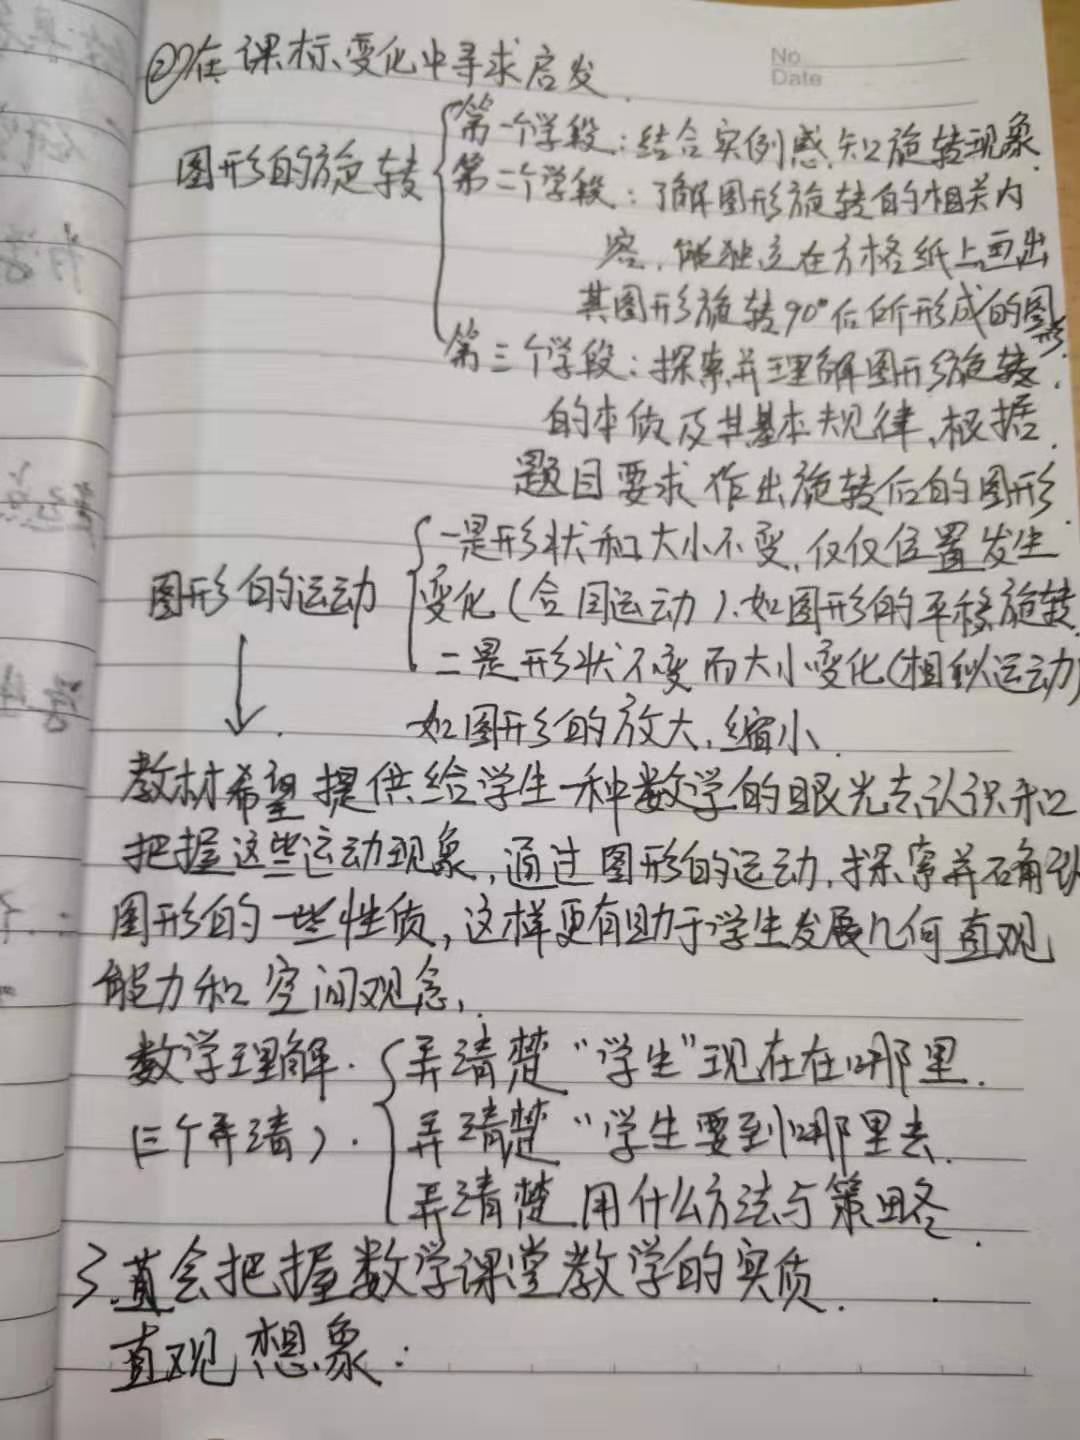 ②在课标变化中寻求启发
No
Date
第一个学段：结合实例感知旋转现象
图形的旋转
第二个学段：了解图形旋转的相关内
容，能独立在方格纸上画出
其图形旋转90°后所形成的图形
第三个学段：探索并理解图形旋转
的本质及其基本规律，根据
题目要求作出旋转后的图形
一是形状和大小不变，仅仅位置发生
图形的运动
变化（合同运动）.如图形的平移旋转
二是形状不变而大小变化（相似运动）
如图形的放大，缩小.
教材希望提供给学生一种数学的眼光去认识和
把握这些运动现象，通过图形的运动，探索并确
图形的一些性质，这样更有助于学生发展几何直观
能力和空间观念，
数学理解.
弄清楚“学生”现在在哪里.
（三个弄清）.
弄清楚“学生要到哪里去.
弄清楚 用什么方法与策略.
3. 会把握数学课堂教学的实质.
直观想象：